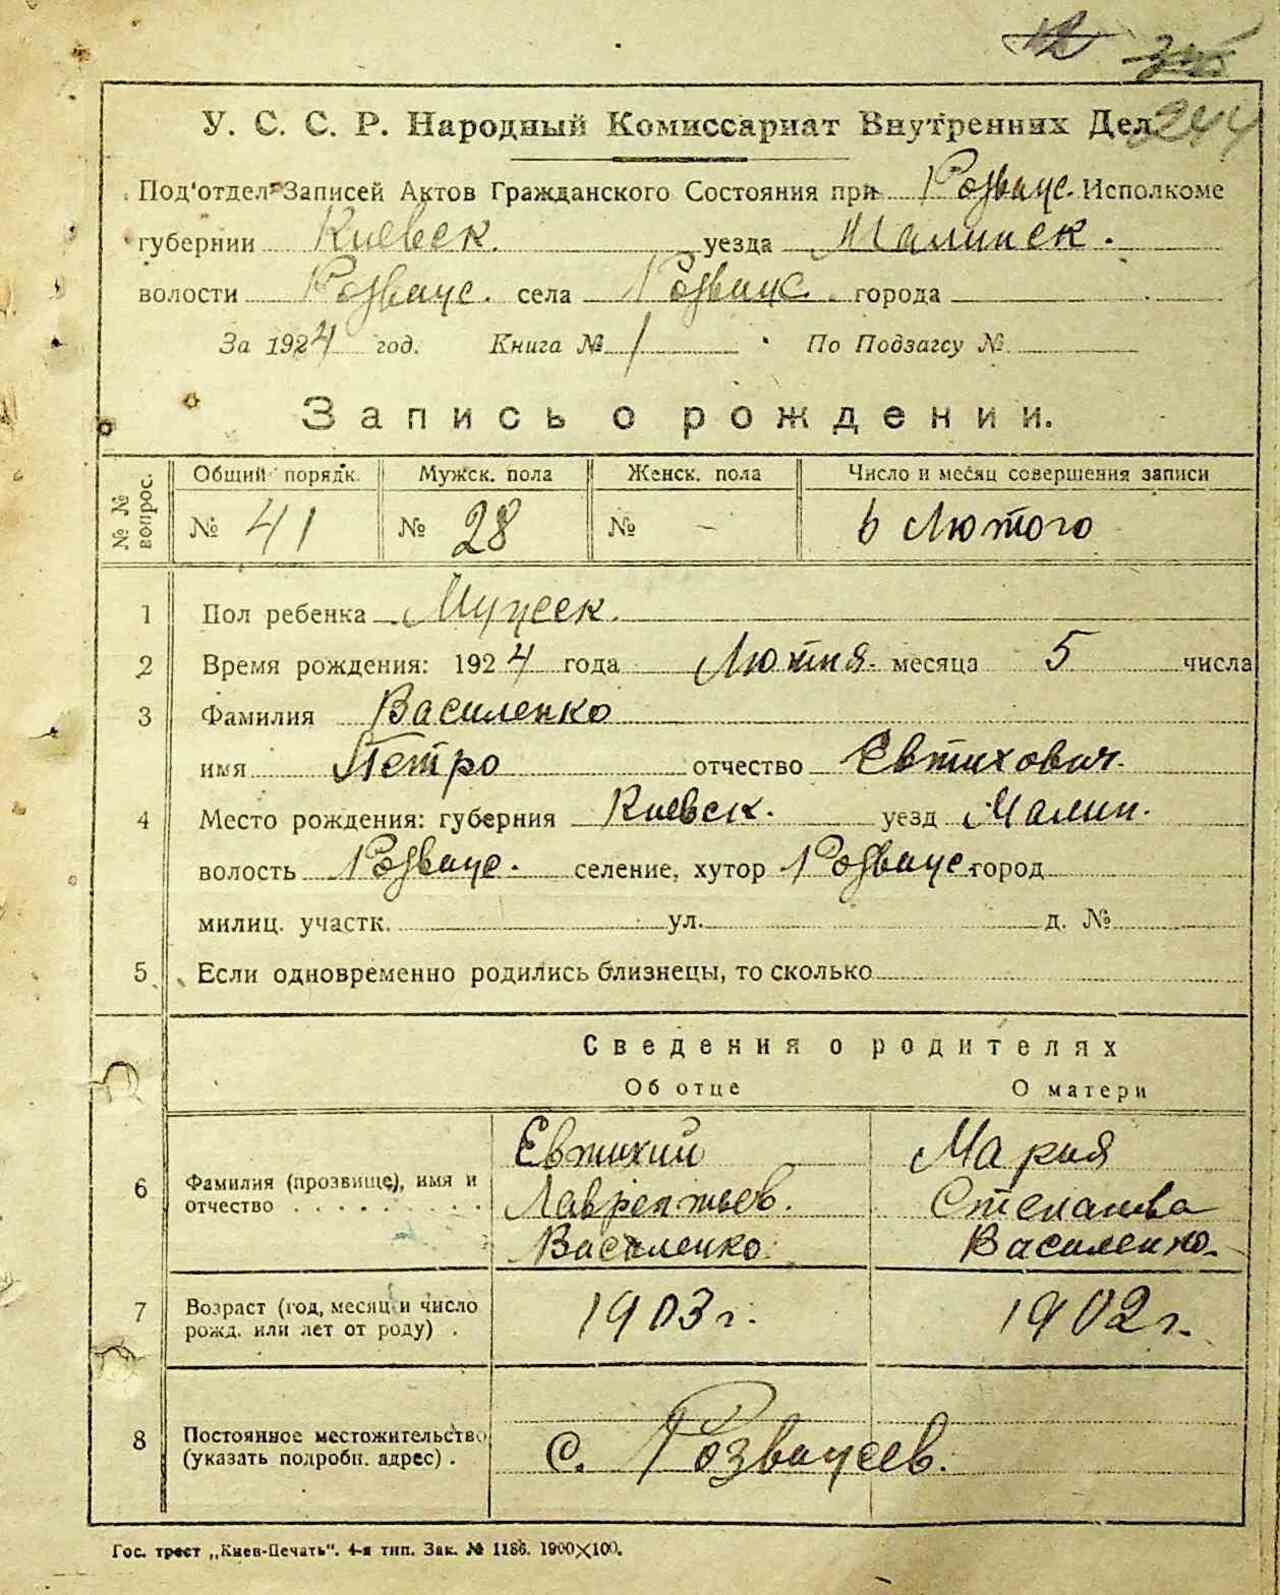 244
У. С. С. Р. Народный Комиссариат Внутренних Дел
Под'отдел Записей Актов Гражданского Состояния при Розваж. Исполкоме
губернии Киевск. уезда Малинск.
волости Розваж. села Розваж. города
За 1924 год. Книга № 1 По Подзагсу №
Запись о рождении.
№ № вопрос. Общий порядк. Мужск. пола Женск. пола Число и месяц совершения записи
№ 41 № 28 № - 6 Лютого
1 Пол ребенка Мужеск.
2 Время рождения: 1924 года Лютня месяца 5 числа
3 Фамилия Василенко
имя Петро отчество Евтихович
4 Место рождения: губерния Киевск. уезд Малин.
волость Розваж. селение, хутор Розваж. город
милиц. участк. ул. д. №
5 Если одновременно родились близнецы, то сколько
Сведения о родителях
Об отце О матери
6 Фамилия (прозвище), имя и отчество . . . . . . . . .
Евтихий Мария
Лаврентьев. Степанова
Василенко Василенко.
7 Возраст (год, месяц и число рожд. или лет от роду) . 1903 г. 1902 г.
8 Постоянное местожительство (указать подробн. адрес) . с. Розважев.
Гос. трест „Киев-Печать". 4-я тип. Зак. № 1186. 1900×100.